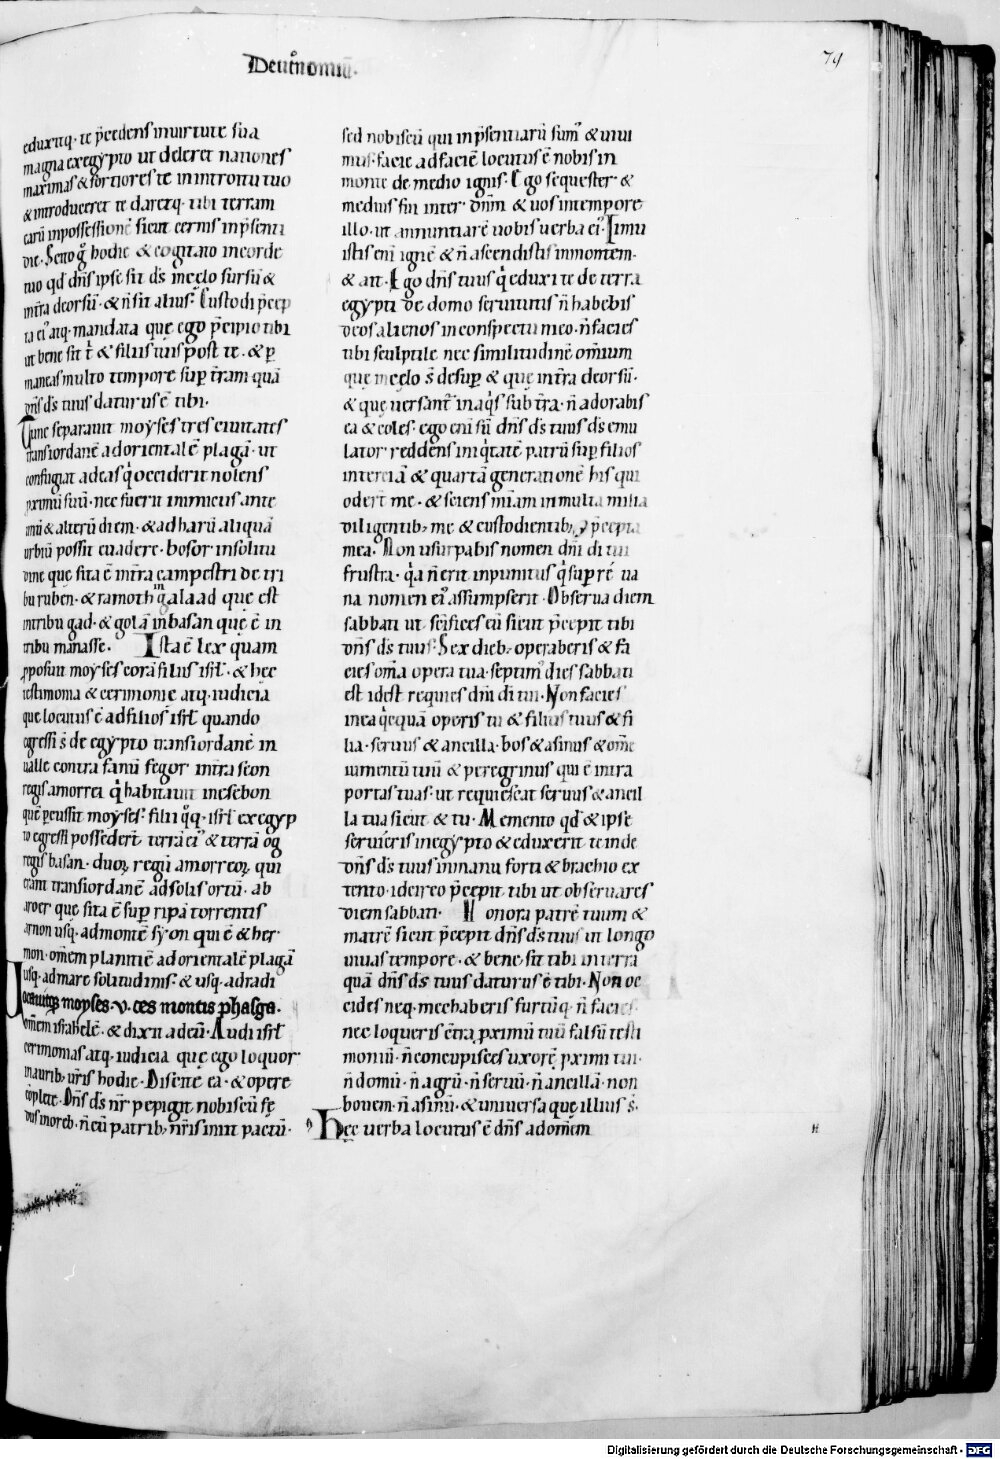 Deut̄nomiū.
79
eduxitq· te p̄cedens in uirtute sua
magna ex egypto ut deleret nationes
maximas & fortiores te in introitu tuo
& introduceret te daretq· tibi terram
earū in possessionē sicut cernis in p̄senti
die. Scito g̊ hodie & cogitato in corde
tuo qd̄ dn̄s ipse sit ds̄ in cęlo sursū &
in t̄ra deorsū· & n̄ sit alius. Custodi p̄cep
ta ei᾽ atq· mandata que ego p̄cipio tibi
ut bene sit t̄ & filiis tuis post te· & p̱
maneas multo tempore sup̱ t̄ram quā
dn̄s ds̄ tuus daturus ē tibi.
Tunc separauit moyses tres ciuitates
trans iordanē ad orientalē plagā· ut
confugiat ad eas q̇ occiderit nolens
p̱ximū suū· nec fuerit inimicus ante
unū & alterū diem· & ad harū aliquā
urbiū possit euadere· bosor in solitu
dine que sita ē in t̄ra campestri de tri
bu ruben· & ramoth in galaad que est
in tribu gad· & golā in basan que ē in
tribu manasse. Ista ē lex quam
p̱posuit moyses corā filiis isrl̄· & hec
testimonia & cerimonie atq· iudicia
que locutus ē ad filios isrl̄ quando
egressi s̄ de egypto trans iordanē in
ualle contra fanū fegor in t̄ra seon
regis amorrei q̇ habitauit in esebon
quē p̱cussit moyses· filii q̊q· isrl̄ ex egyp
to egressi possedert̄ terrā ei᾽ & terrā og
regis basan· duoꝝ regū amorreoꝝ qui
erant trans iordanē ad solis ortū· ab
aroer que sita ē sup̱ ripā torrentis
arnon usq· ad montē syon qui ē & her
mon· om̄em planitiē ad orientalē plagā
usq· ad mare solitudinis· & usq· ad radi
ces montis phasga.
Vocauitq; moyses· v.
om̄em israhelē· & dixit ad eū· Audi isrl̄
cerimonias atq· iudicia que ego loquor
in aurib; ur̄is hodie· Discite ea· & opere
cōplete. Dn̄s ds̄ nr̄ pepigit nobiscū fę
dus in oreb· n̄ cū patrib; nr̄is iniit pactū·
sed nobiscū qui in p̄sentiarū sum᾽ & uiui
mus· facie ad faciē locutus ē nobis in
monte de medio ignis· Ego sequester &
medius fui inter dn̄m & uos in tempore
illo· ut annuntiarē uobis uerba ei᾽. Timu
istis eni ignē & n̄ ascendistis in montem·
& ait· Ego dn̄s ds̄ tuus q̇ eduxi te de terra
egypti de domo seruitutis n̄ habebis
deos alienos in conspectu meo· n̄ facies
tibi sculptile nec similitudinē om̄ium
que in cęlo s̄ desup̱ & que in t̄ra deorsū·
& que uersant᾽ in aq̇s sub t̄ra· n̄ adorabis
ea & coles· ego eni sū dn̄s ds̄ tuus ds̄ emu
lator· reddens iniq̇tatē patrū sup̱ filios
in terciā & quartā generationē his qui
odert̄ me· & faciens mīam in multa milia
diligentib; me & custodientib; p̄cepta
mea. Non usurpabis nomen dn̄i di tui
frustra· q̇a n̄ erit inpunitus q̇ sup̱ re ua
na nomen ei᾽ assumpserit· Obserua diem
sabbati ut sc̄ifices eū sicut p̄cepit tibi
dn̄s ds̄ tuus· Sex dieb; operaberis & fa
cies om̄a opera tua· septim᾽ dies sabbati
est idest requies dn̄i di tui· Non facies
in ea q̇cquā operis tu & filius tuus & fi
lia· seruus & ancilla· bos & asinus & om̄e
iumentū tuū & peregrinus qui ē intra
portas tuas· ut requiescat seruus & ancil
la tua sicut & tu· Memento qd̄ & ipse
seruieris in egypto & eduxerit te inde
dn̄s ds̄ tuus in manu forti & brachio ex
tento· idcirco p̄cepit tibi ut obseruares
diem sabbati. Honora patrē tuum &
matrē sicut p̄cepit dn̄s ds̄ tuus ut longo
uiuas tempore· & bene sit tibi in terra
quā dn̄s ds̄ tuus daturus ē tibi· Non oc
cides neq· mechaberis furtūq· n̄ facies·
nec loqueris c̄tra p̱ximū tuū falsū testi
moniū· n̄ concupisces uxorē p̱ximi tui·
n̄ domū· n̄ agrū· n̄ seruū· n̄ ancillā· non
bouem· n̄ asinū· & uniuersa que illius s̄·
Hęc uerba locutus ē dn̄s ad om̄em
Digitalisierung gefördert durch die Deutsche Forschungsgemeinschaft - DFG